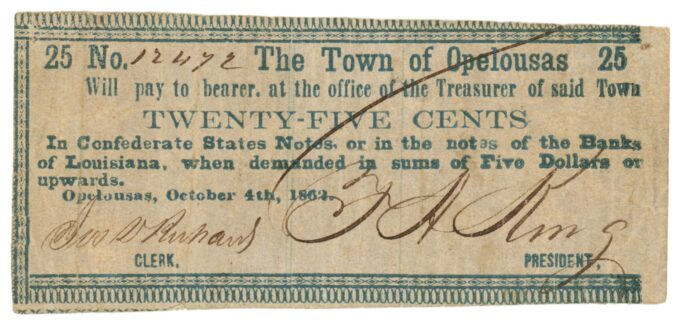 25 No. 12472 The Town of Opelousas 25
Will pay to bearer. at the office of the Treasurer of said Town
TWENTY-FIVE CENTS
In Confederate States Notes, or in the notes of the Banks
of Louisiana, when demanded in sums of Five Dollars or
upwards.
Opelousas, October 4th, 1862.
Richard
A King
CLERK, PRESIDENT,